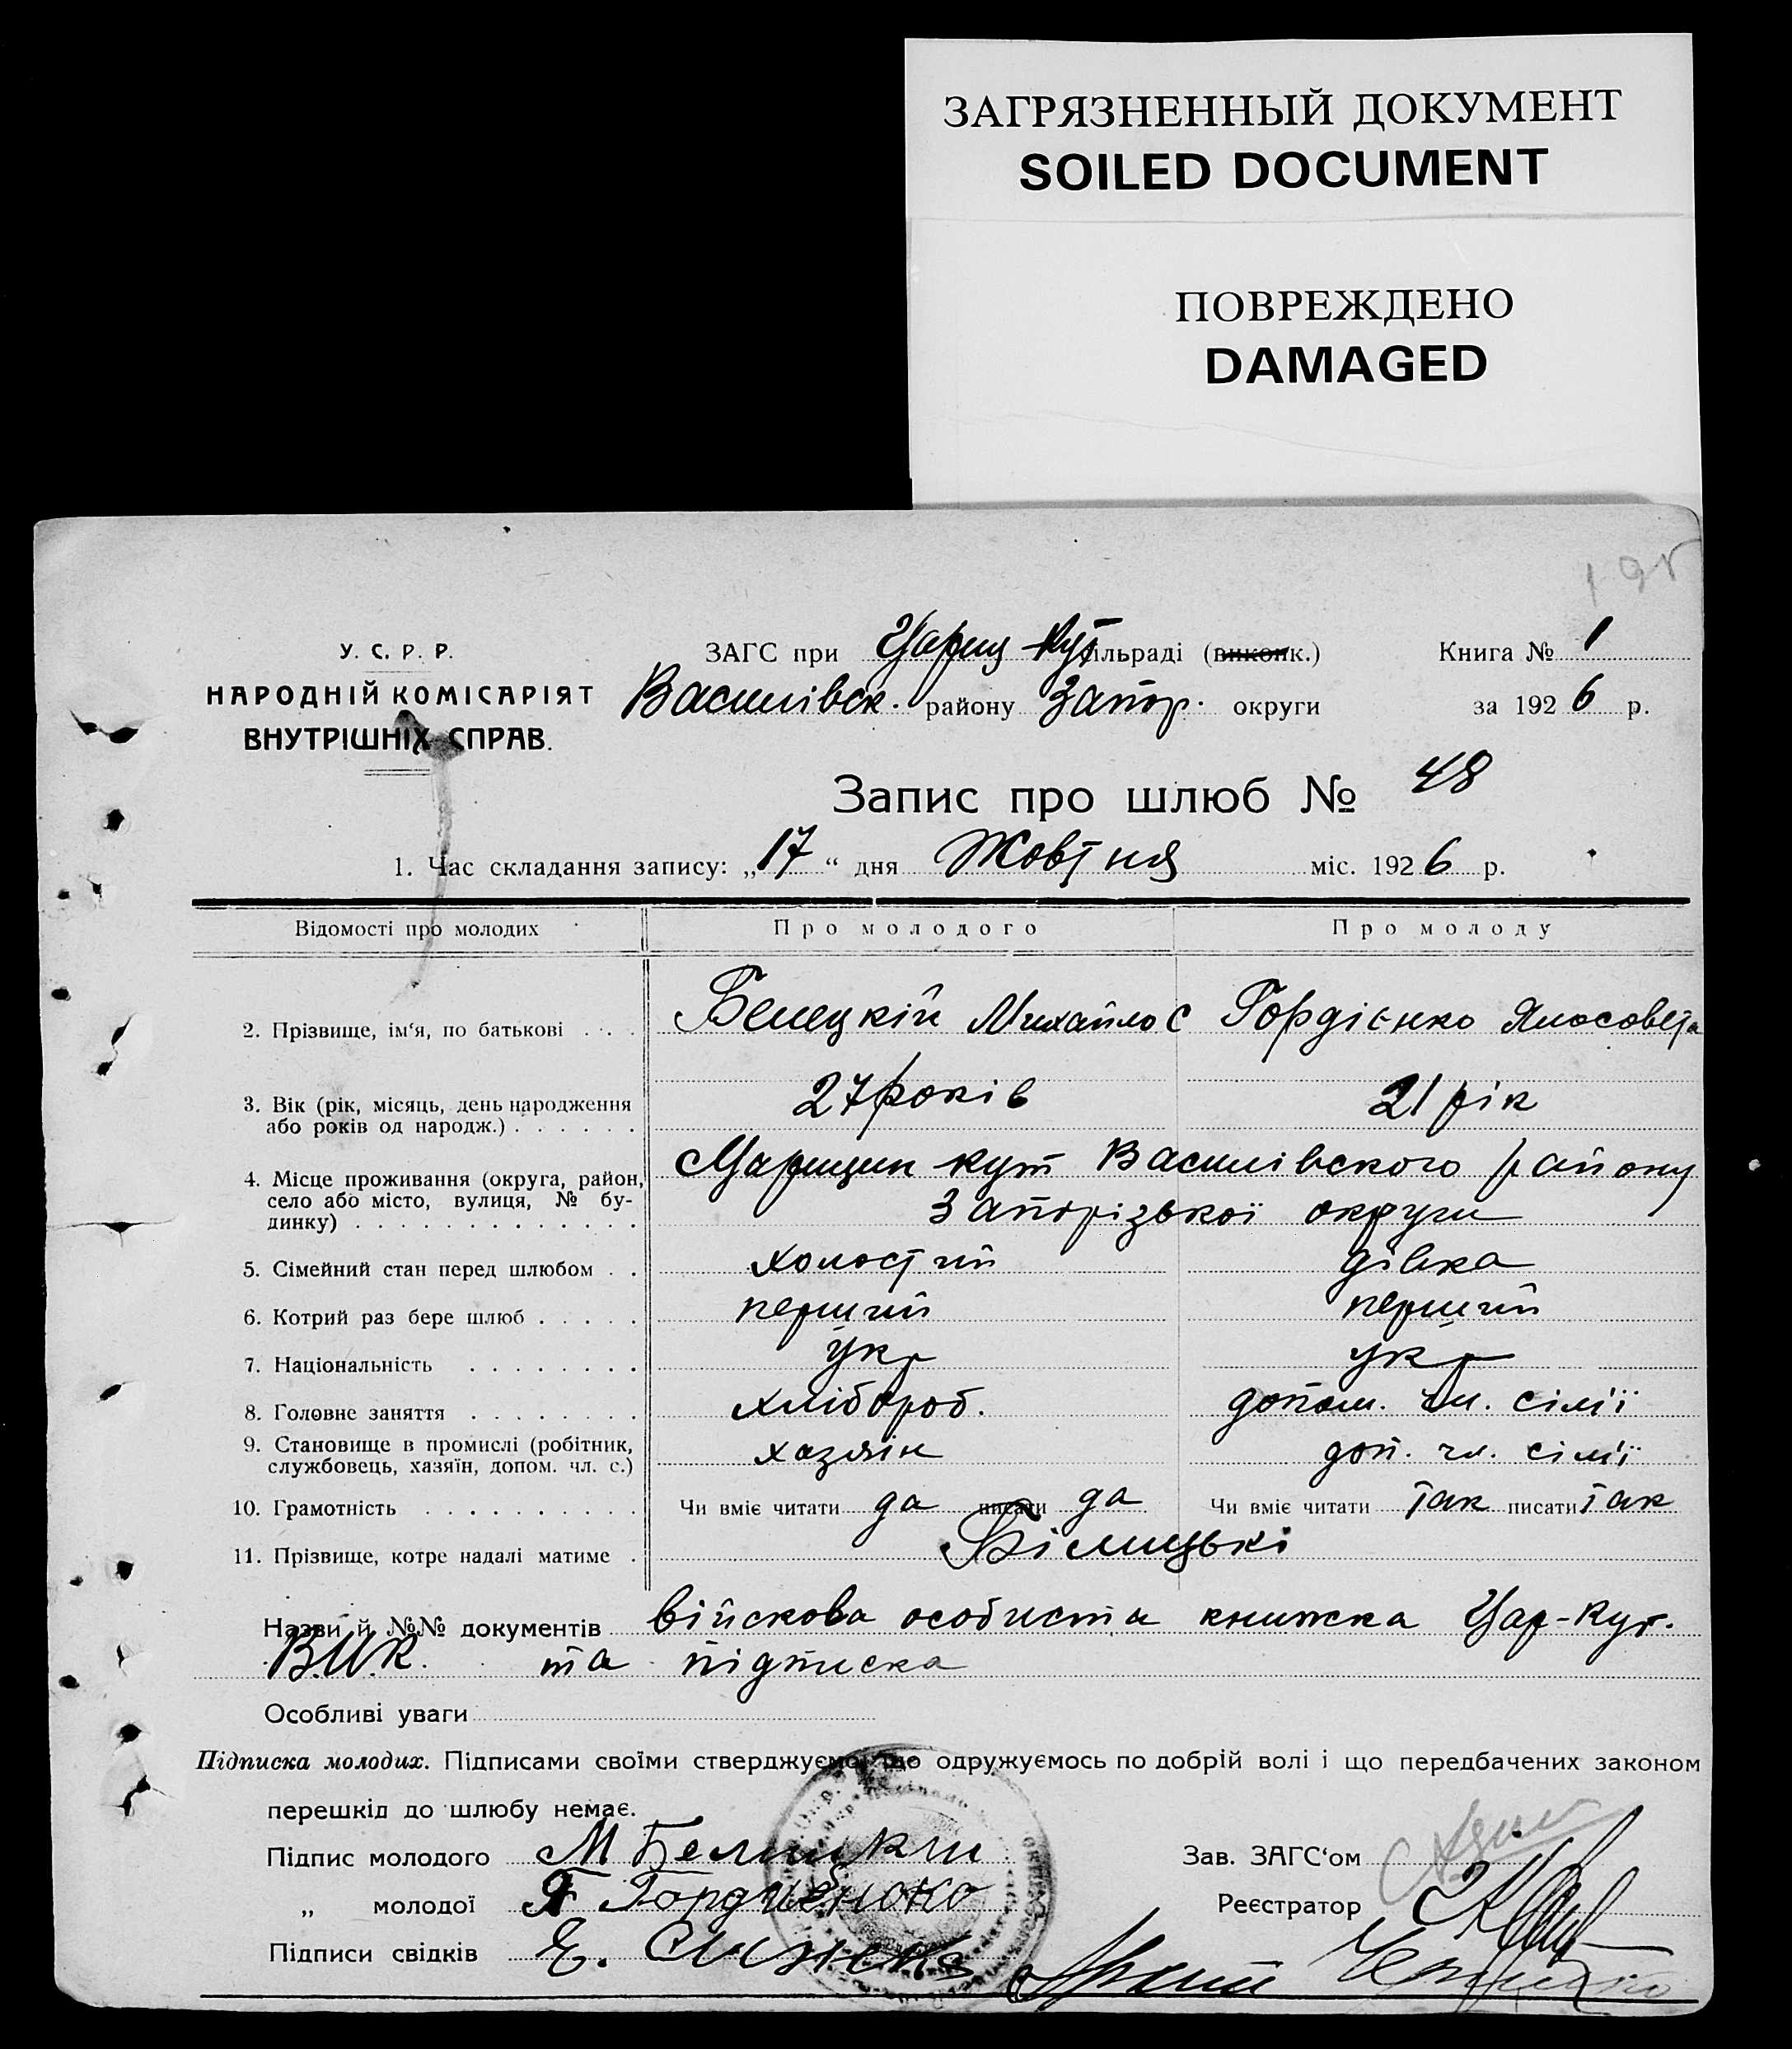 ЗАГРЯЗНЕННЫЙ ДОКУМЕНТ
SOILED DOCUMENT
ПОВРЕЖДЕНО
DAMAGED
У. С. Р. Р.
НАРОДНІЙ КОМІСАРІЯТ
ВНУТРІШНІХ СПРАВ.
ЗАГС при Цариц Кут сільраді (виконк.) Книга № 1
Василівск. району Запор. округи за 1926 р.
Запис про шлюб № 48
1. Час складання запису: „17“ дня Жовтня міс. 1926 р.
Відомості про молодих Про молодого Про молоду
2. Прізвище, ім‘я, по батькові . . . Белецкій Михайло С Гордієнко
3. Вік (рік, місяць, день народження 27 років 21 рік
або років од народж.) . . . . . .
4. Місце проживання (округа, район, Царицин кут Василівского району
село або місто, вулиця, № бу- Запорізької округи
динку) . . . . . . . . . . . . .
5. Сімейний стан перед шлюбом . . холостий дівка
6. Котрий раз бере шлюб . . . . . перший перший
7. Національність . . . . . . . . укр укр
8. Головне заняття . . . . . . . . хлібороб. допом. чл. сімї
9. Становище в промислі (робітник, хазяїн доп. чл. сімї
службовець, хазяїн, допом. чл. с.)
10. Грамотність . . . . . . . . . . Чи вміє читати да писати да Чи вміє читати так писати так
11. Прізвище, котре надалі матиме . Білицькі
Назви й №№ документів війскова особиста книжка Цар-Кут.
В.И.К. та підписка
Особливі уваги
Підписка молодих. Підписами своїми стверджуємо, що одружуємось по добрій волі і що передбачених законом
перешкід до шлюбу немає.
Підпис молодого М Белицкий Зав. ЗАГС‘ом
„ молодої Гордиеноко Реєстратор
Підписи свідків Е.